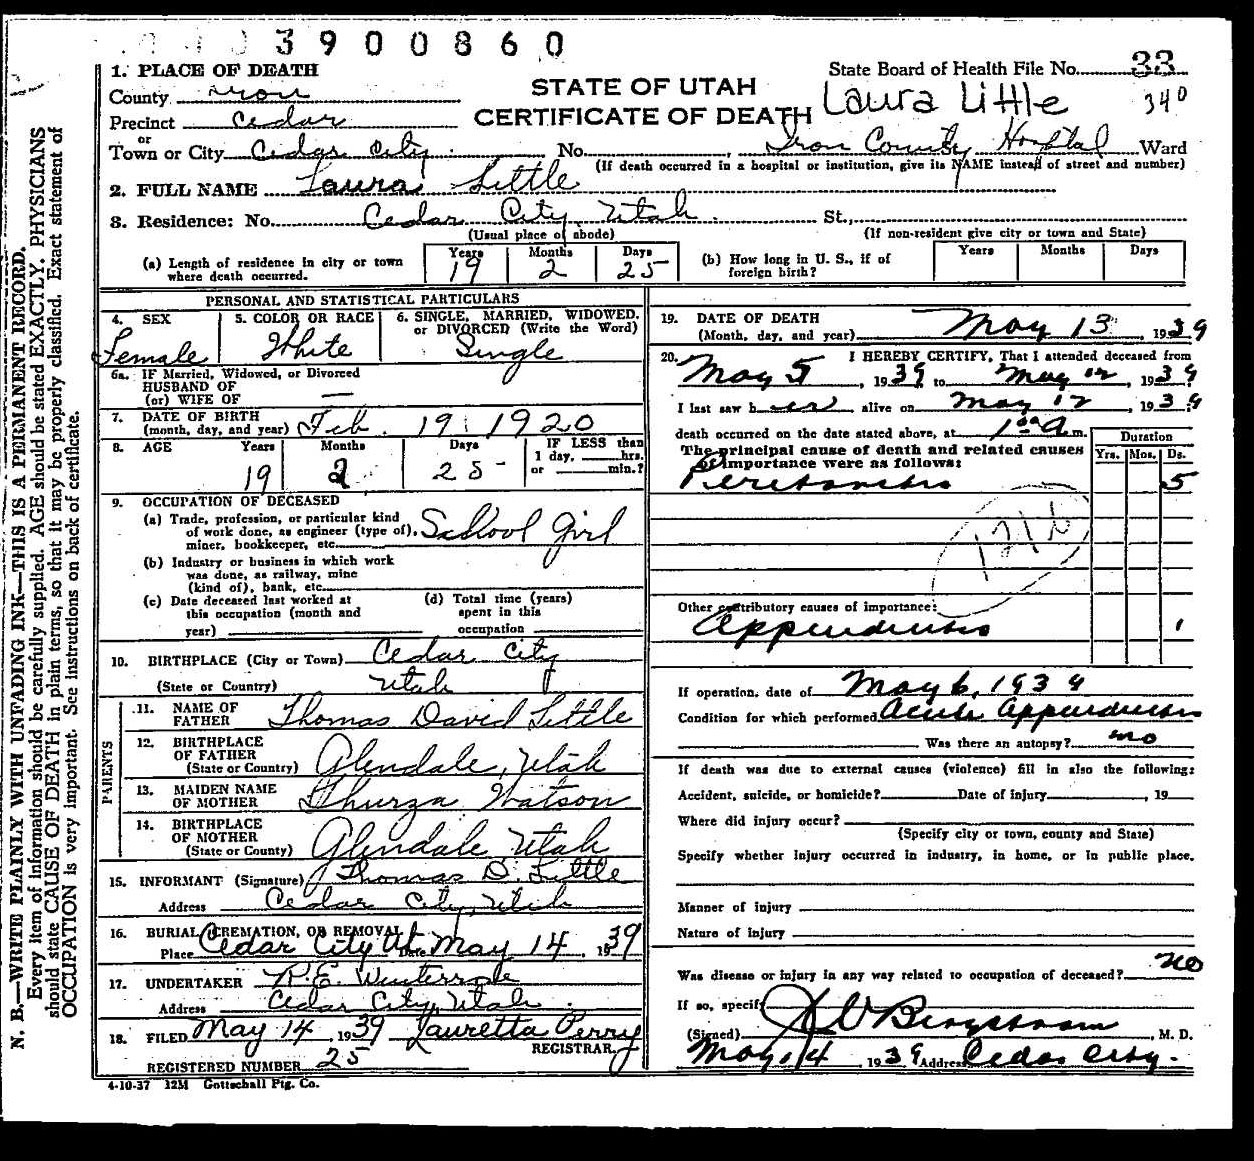 3900860
1. PLACE OF DEATH
County Iron
Precinct Cedar
or
Town or City Cedar City. No. , Iron County Hospital Ward
(If death occurred in a hospital or institution, give its NAME instead of street and number)
STATE OF UTAH
CERTIFICATE OF DEATH
State Board of Health File No. 33
Laura Little 340
2. FULL NAME Laura Little
3. Residence: No. Cedar City, Utah. St.,
(Usual place of abode) (If non-resident give city or town and State)
(a) Length of residence in city or town where death occurred. Years 19 Months 2 Days 25
(b) How long in U. S., if of foreign birth? Years Months Days
PERSONAL AND STATISTICAL PARTICULARS
4. SEX Female
5. COLOR OR RACE White
6. SINGLE, MARRIED, WIDOWED, or DIVORCED (Write the Word) Single
6a. IF Married, Widowed, or Divorced
HUSBAND OF
(or) WIFE OF —
7. DATE OF BIRTH
(month, day, and year) Feb. 19, 1920
8. AGE Years 19 Months 2 Days 25 IF LESS than 1 day, hrs. or min.?
9. OCCUPATION OF DECEASED
(a) Trade, profession, or particular kind
of work done, as engineer (type of), School Girl
miner, bookkeeper, etc.
(b) Industry or business in which work
was done, as railway, mine
(kind of), bank, etc.
(c) Date deceased last worked at
this occupation (month and
year)
(d) Total time (years)
spent in this
occupation
10. BIRTHPLACE (City or Town) Cedar City
(State or Country) Utah
PARENTS
11. NAME OF FATHER Thomas David Little
12. BIRTHPLACE OF FATHER (State or Country) Glendale, Utah
13. MAIDEN NAME OF MOTHER Thurza Watson
14. BIRTHPLACE OF MOTHER (State or County) Glendale Utah
15. INFORMANT (Signature) Thomas D. Little
Address Cedar City, Utah
16. BURIAL, CREMATION, OR REMOVAL
Place Cedar City Ut Date May 14, 1939
17. UNDERTAKER R.E.
Address Cedar City, Utah.
18. FILED May 14, 1939 Lauretta Perry
REGISTRAR.
REGISTERED NUMBER 25
4-10-37 12M Gottschall Ptg. Co.
19. DATE OF DEATH
(Month, day, and year) May 13, 1939
20. I HEREBY CERTIFY, That I attended deceased from
May 5, 1939 to May 12, 1939
I last saw her alive on May 12, 1939
death occurred on the date stated above, at 1 00 A m.
The principal cause of death and related causes
of importance were as follows:
Duration
Yrs. Mos. Ds.
Peretonitis 5
Other contributory causes of importance:
Appendicitis 1
If operation, date of May 6, 1939
Condition for which performed Acute Appendicitis
Was there an autopsy? no
If death was due to external causes (violence) fill in also the following:
Accident, suicide, or homicide? Date of injury , 19
Where did injury occur?
(Specify city or town, county and State)
Specify whether injury occurred in industry, in home, or in public place.
Manner of injury
Nature of injury
Was disease or injury in any way related to occupation of deceased? no
If so, specify
(Signed) Bergstrom, M. D.
May 14 1939 Address Cedar City.
N. B.—WRITE PLAINLY WITH UNFADING INK—THIS IS A PERMANENT RECORD.
Every item of information should be carefully supplied. AGE should be stated EXACTLY. PHYSICIANS
should state CAUSE OF DEATH in plain terms, so that it may be properly classified. Exact statement of
OCCUPATION is very important. See instructions on back of certificate.